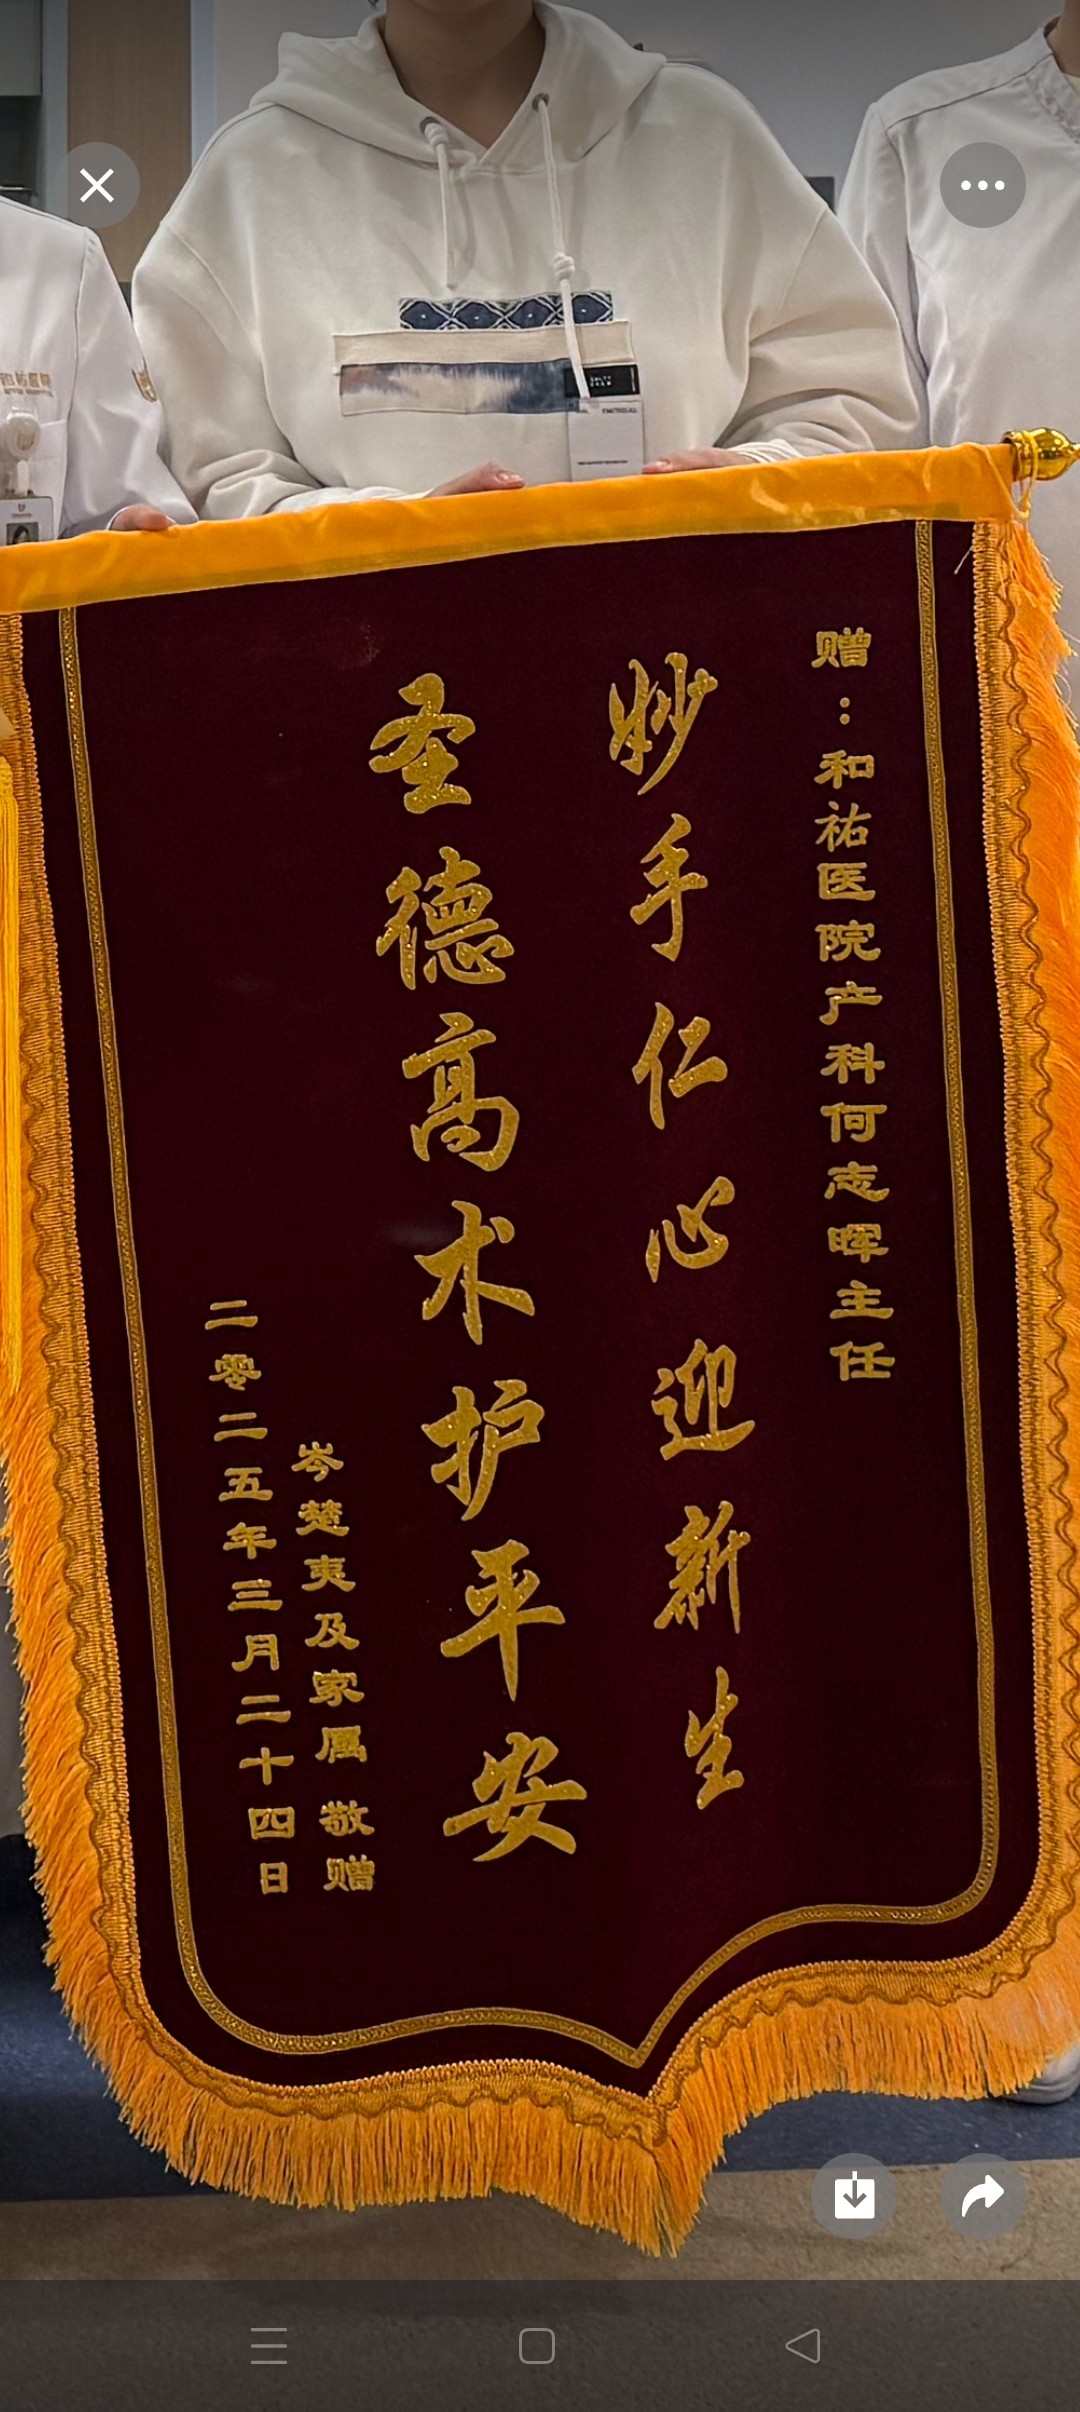 赠：和祐医院产科何志晖主任
妙手仁心迎新生
圣德高术护平安
岑楚夷及家属 敬赠
二零二五年三月二十四日